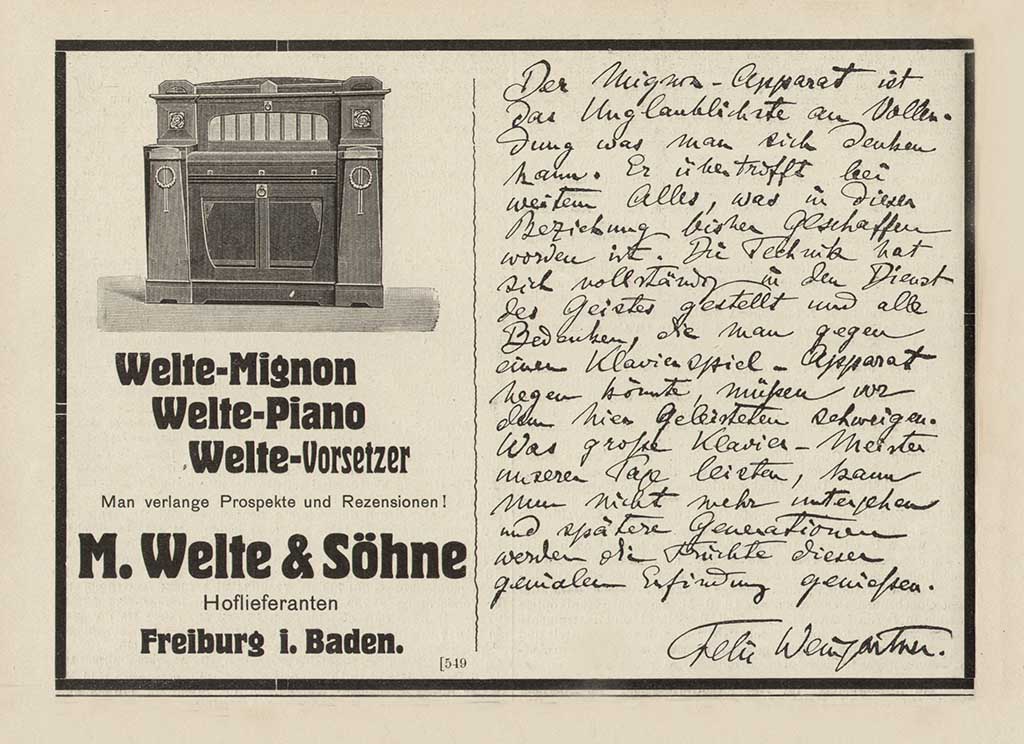 Welte-Mignon
Welte-Piano
Welte-Vorsetzer
Man verlange Prospekte und Rezensionen!
M. Welte & Söhne
Hoflieferanten
Freiburg i. Baden.
[549
Der Mignon-Apparat ist
das Unglaublichste an Vollen-
dung was man sich denken
kann. Er übertrifft bei
weitem Alles, was in dieser
Beziehung bisher Geschaffen
worden ist. Die Technik hat
sich vollständig in den Dienst
des Geistes gestellt und alle
Bedenken, die man gegen
einen Klavierspiel-Apparat
hegen könnte, müßen vor
dem hier Geleisteten schweigen.
Was große Klavier-Meister
unserer Tage leisten, kann
nun nicht mehr untergehen
und spätere Generationen
werden die Früchte dieser
genialen Erfindung genießen.
Felix Weingartner.